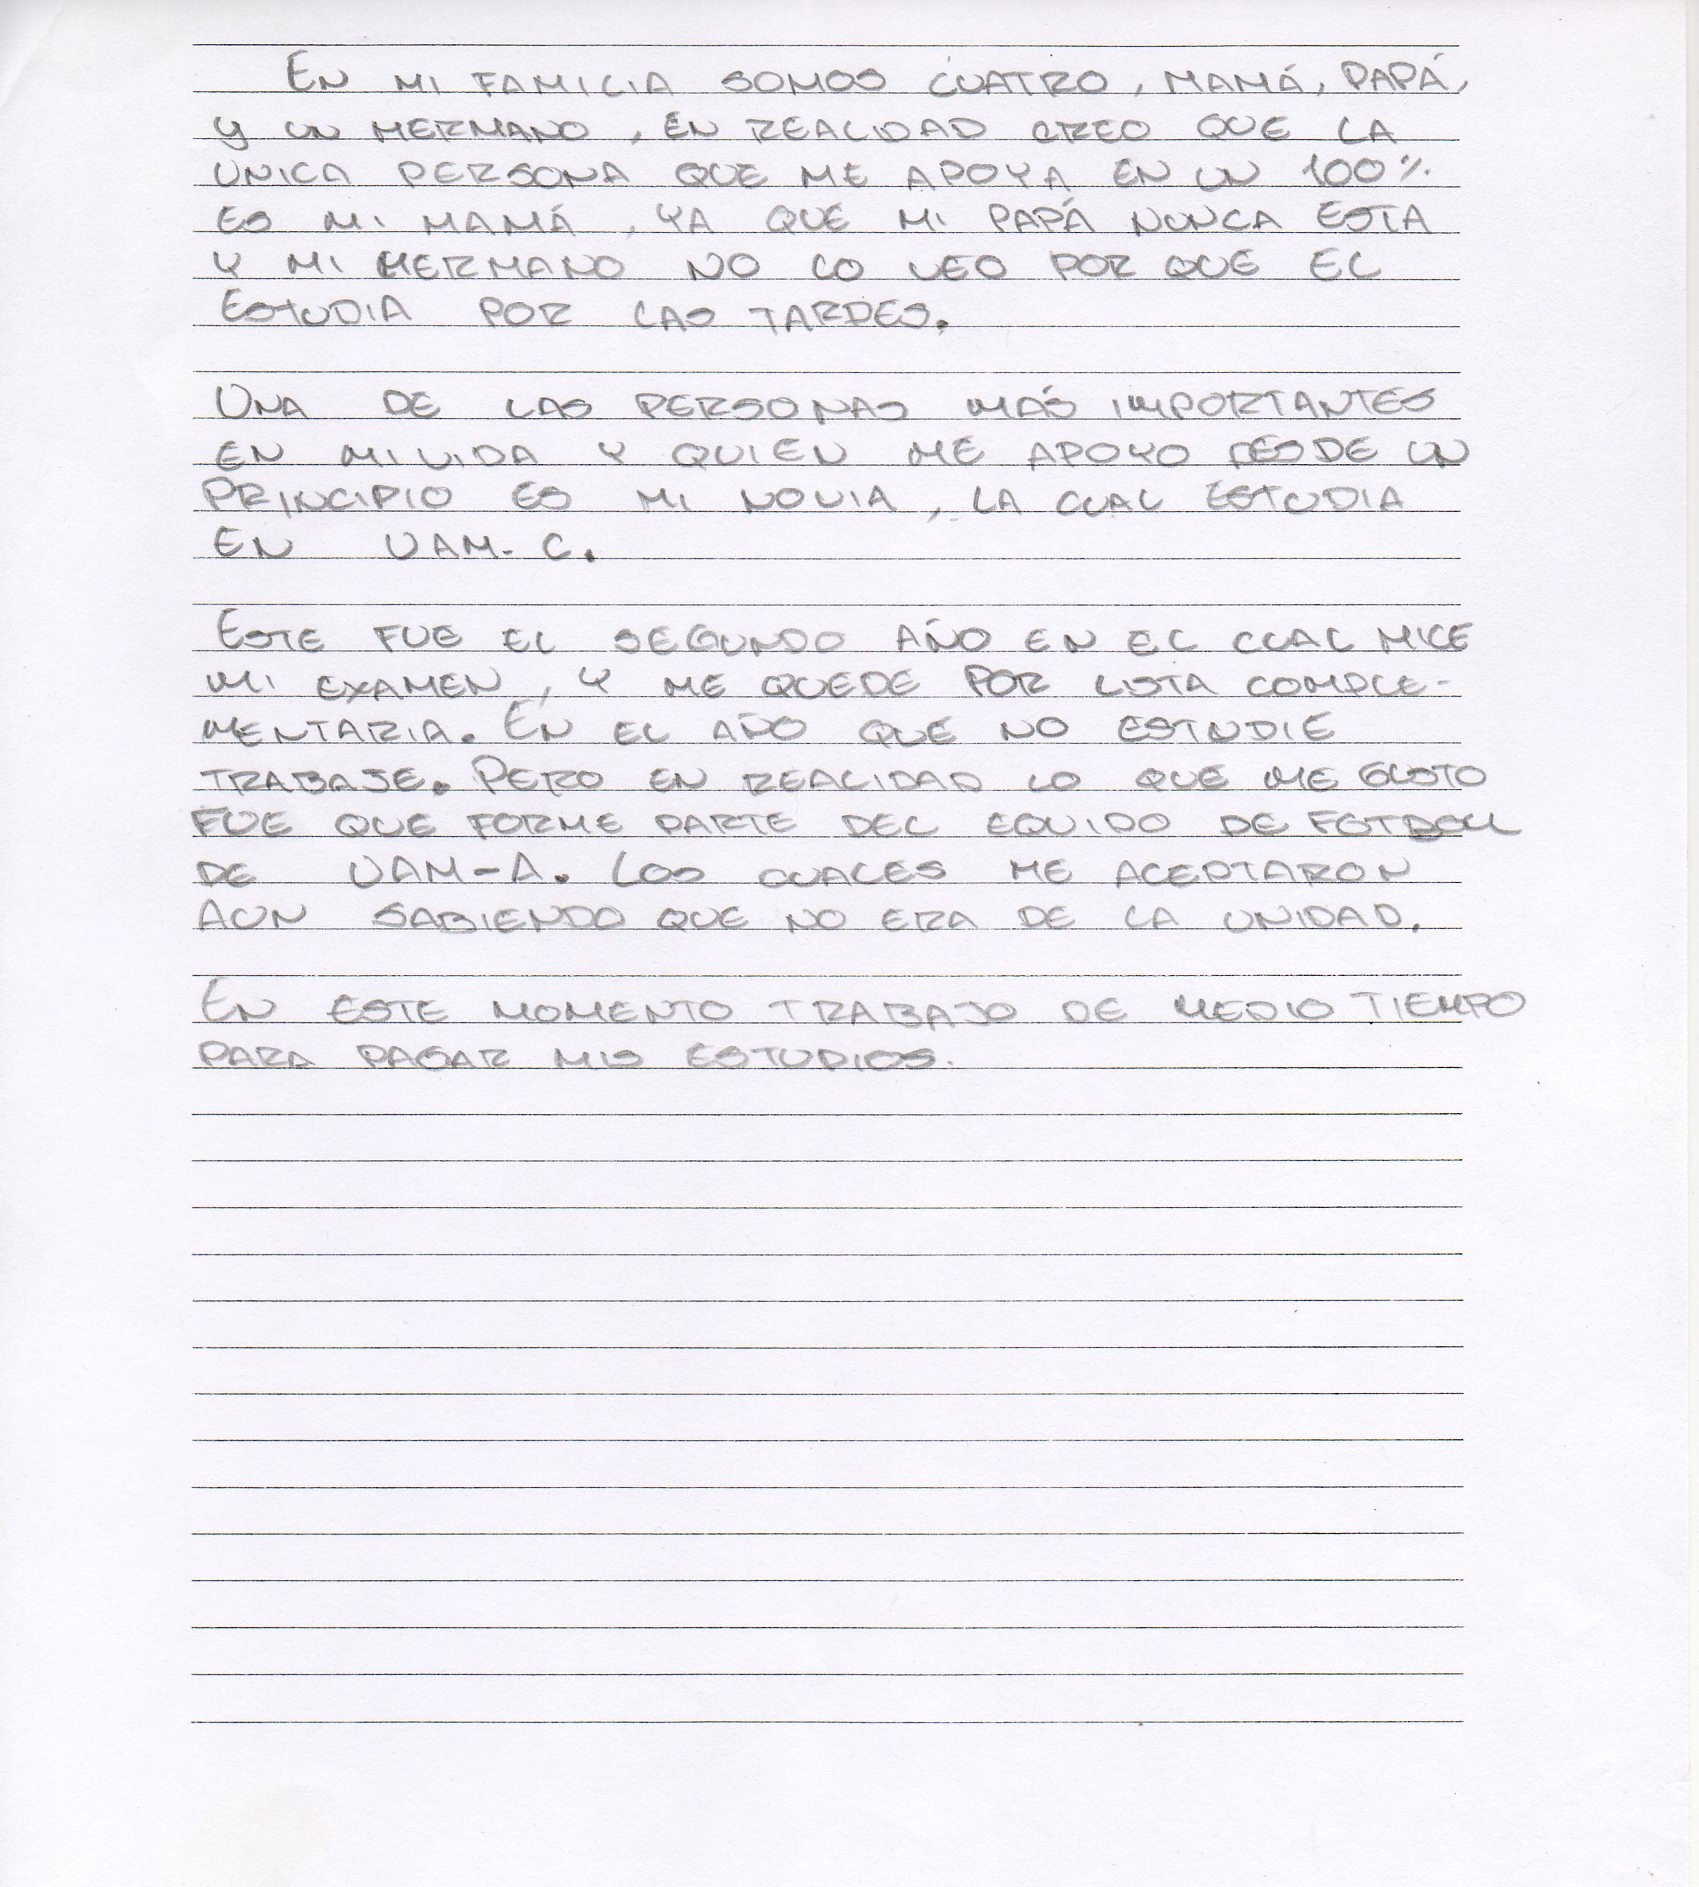 EN MI FAMILIA SOMOS CUATRO, MAMÁ, PAPÁ,
Y UN HERMANO, EN REALIDAD CREO QUE LA
UNICA PERSONA QUE ME APOYA EN UN 100%
ES MI MAMÁ, YA QUE MI PAPÁ NUNCA ESTA
Y MI HERMANO NO LO VEO POR QUE EL
ESTUDIA POR LAS TARDES.
UNA DE LAS PERSONAS MAS IMPORTANTES
EN MI VIDA Y QUIEN ME APOYO DESDE UN
PRINCIPIO ES MI NOVIA, LA CUAL ESTUDIA
EN UAM-C.
ESTE FUE EL SEGUNDO AÑO EN EL CUAL HICE
MI EXAMEN, Y ME QUEDE POR LISTA COMPLE-
MENTARIA. EN EL AÑO QUE NO ESTUDIE
TRABAJE. PERO EN REALIDAD LO QUE ME GUSTO
FUE QUE FORME PARTE DEL EQUIPO DE FUTBOLL
DE UAM-A. LOS CUALES ME ACEPTARON
AUN SABIENDO QUE NO ERA DE LA UNIDAD.
EN ESTE MOMENTO TRABAJO DE MEDIO TIEMPO
PARA PAGAR MIS ESTUDIOS.